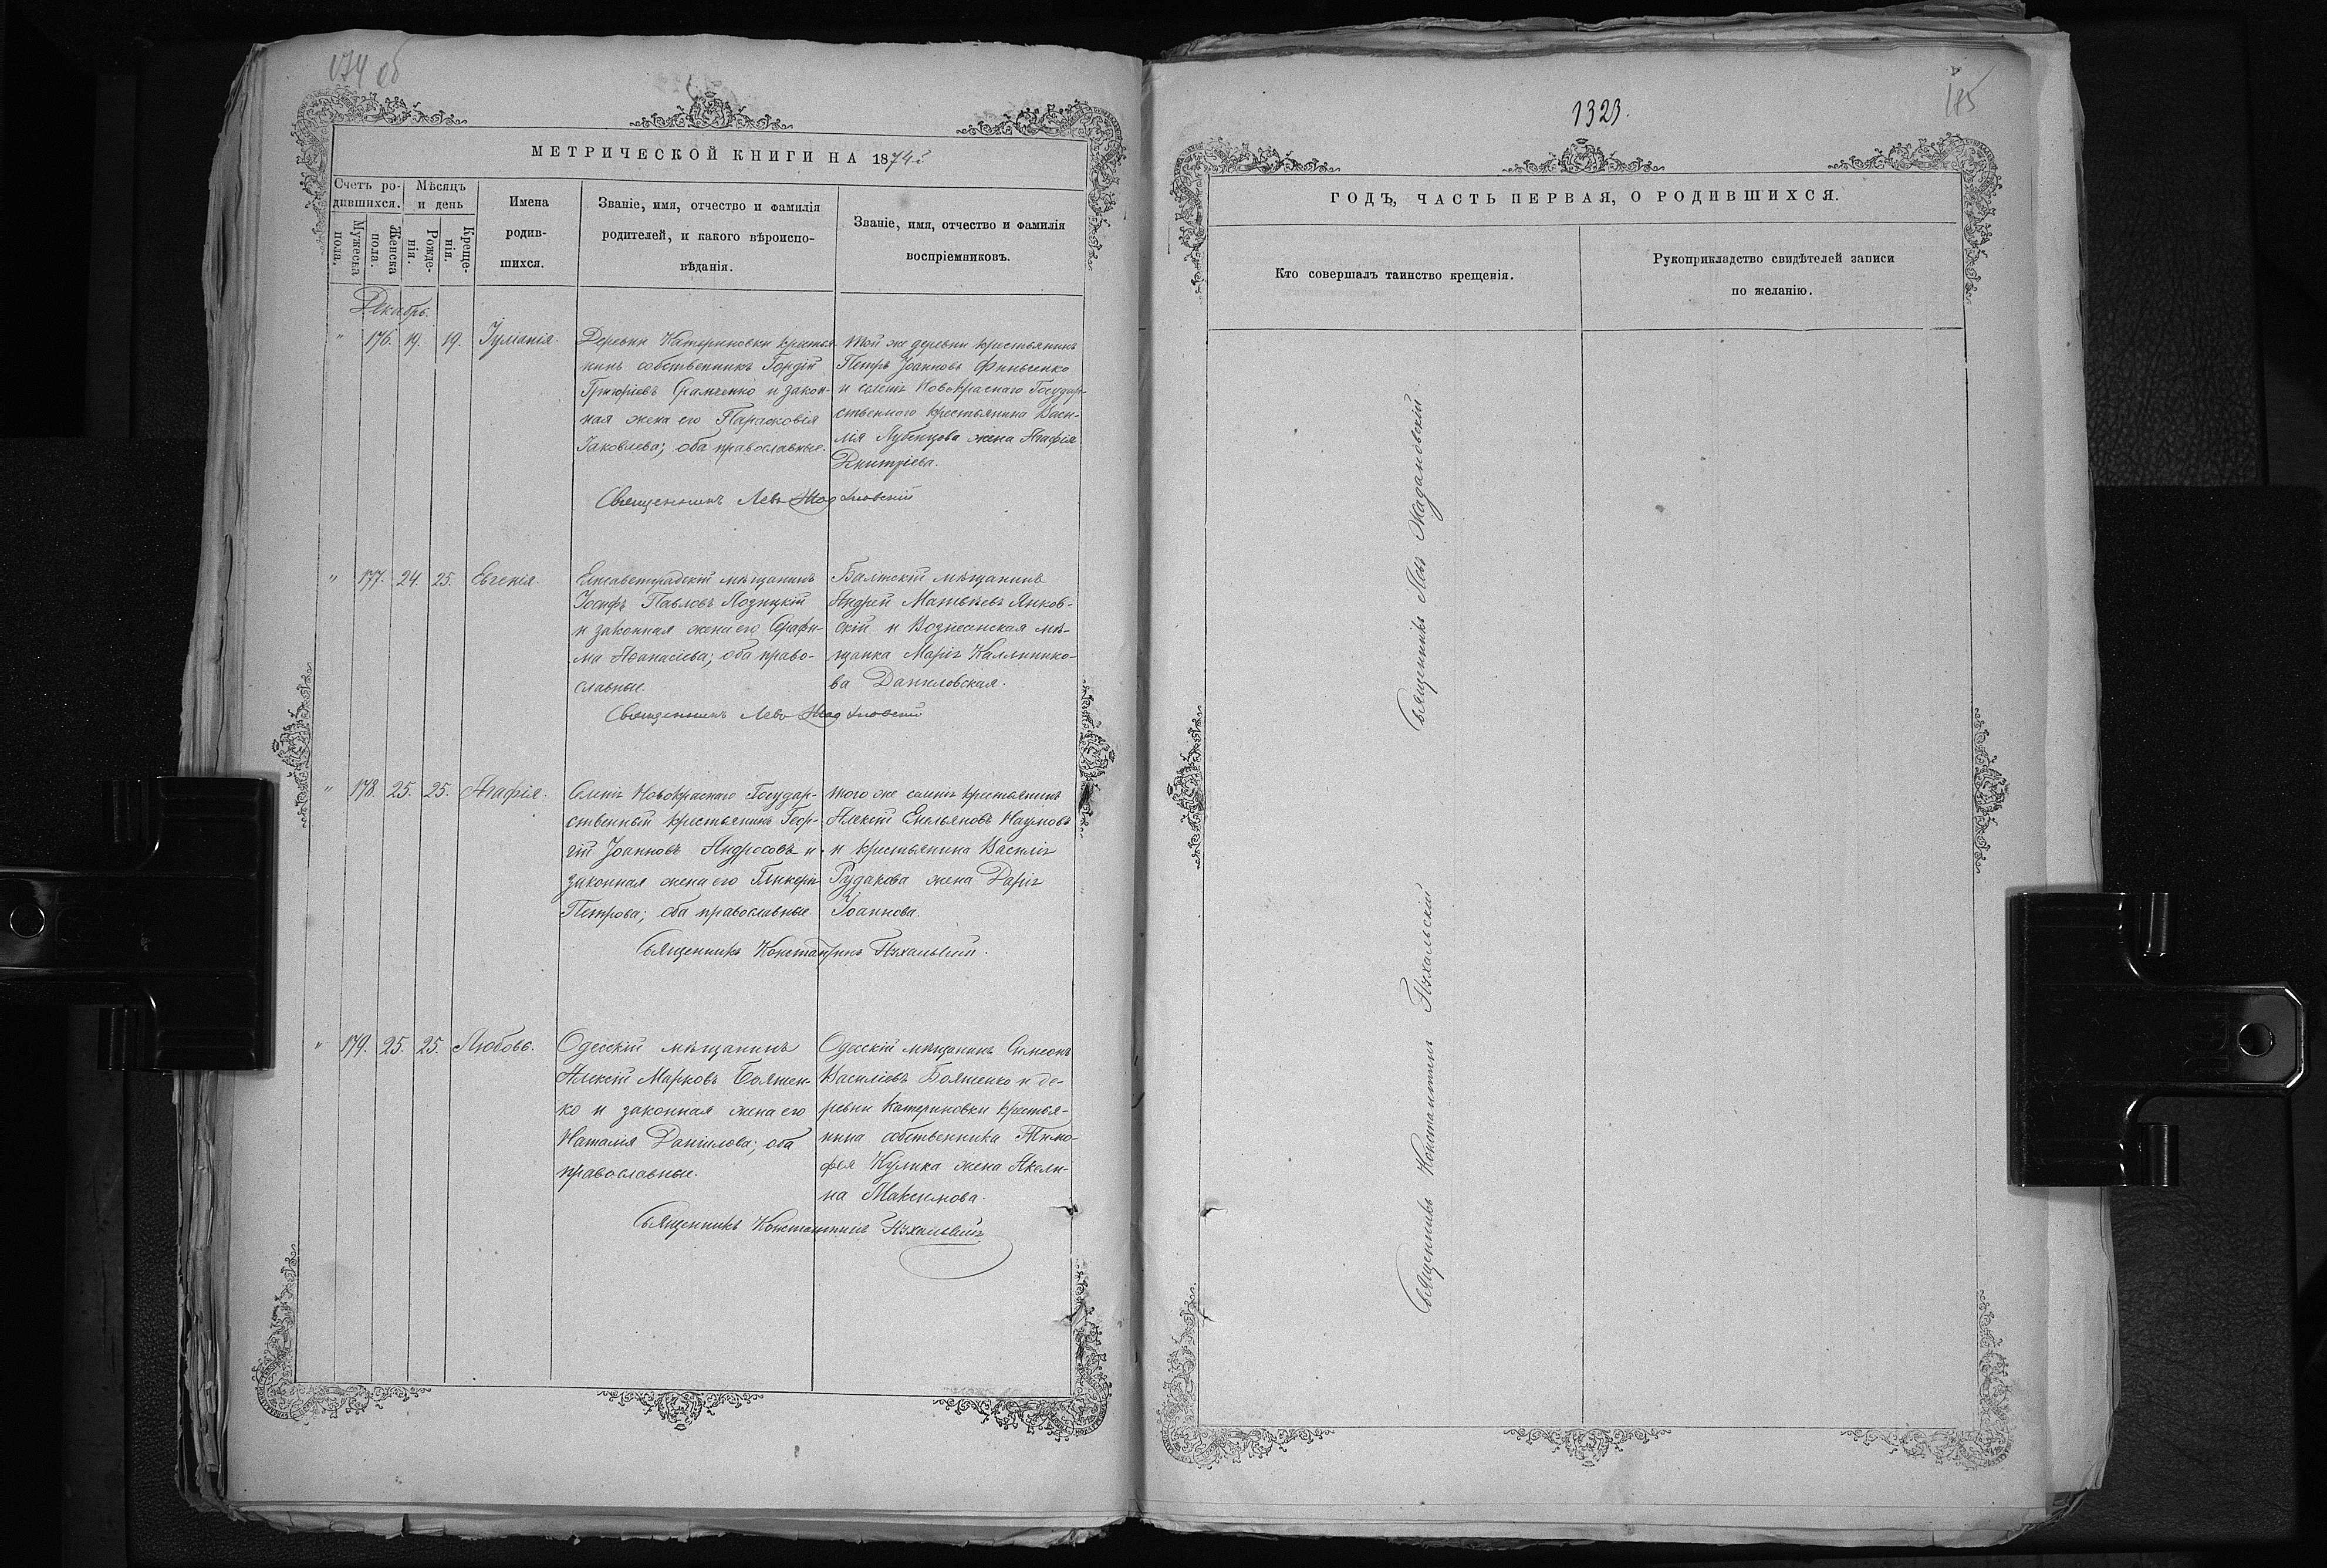 174 об
МЕТРИЧЕСКОЙ КНИГИ НА 1874й
Счетъ ро-
дившихся.
Мужеска
пола.
Женска
пола.
Мѣсяцъ
и день
Рожде-
нія.
Креще-
нія.
Имена
родив-
шихся.
Званіе, имя, отчество и фамилія
родителей, и какого вѣроиспо-
вѣданія.
Званіе, имя, отчество и фамилія
воспріемниковъ.
Декабрь.
" 176. 19. 19. Іуліанія.
Деревни Катериновки крестья-
нинъ собственникъ Гордій
Григоріевъ и закон-
ная жена его Парасковія
Іаковлева; оба православные.
Той же деревни крестьянинъ
Петръ Іоанновъ
и селенія Новокраснаго Государ-
ственнаго крестьянина Васи-
лія Лубенцова жена Агафія
Дмитріева.
Священникъ Левъ Жадановскій
" 177. 24. 25. Евгенія.
Елисаветградскій мѣщанинъ
Іосифъ Павловъ Лозицкій
и законная жена его Серафи-
ма Аѳанасіева; оба право-
славные.
Балтскій мѣщанинъ
Андрей Матвѣевъ Янков-
скій и Вознесенская мѣ-
щанка Марія Каллинико-
ва Даниловская.
Священникъ Левъ Жадановскій
" 178. 25. 25. Агафія.
Селенія Новокраснаго Государ-
ственный крестьянинъ Геор-
гій Іоанновъ Андросовъ и
законная жена его Гликерія
Петрова; оба православные.
Того же селенія крестьянинъ
Алексій Емельяновъ Наумовъ
и крестьянина Василія
Рудакова жена Дарія
Іоаннова.
Священникъ Константинъ Пѣхальскій.
" 179. 25. 25. Любовь.
Одесскій мѣщанинъ
Алексій Марковъ Бояжен-
ко и законная жена его
Наталія Даніилова; оба
православные.
Одесскій мѣщанинъ Симеонъ
Василіевъ Бояженко и де-
ревни Катериновки крестья-
нина собственника Тимо-
фея Кулика жена Акели-
на Максимова.
Священникъ Константинъ Пѣхальскій
1323.
175
ГОДЪ, ЧАСТЬ ПЕРВАЯ, О РОДИВШИХСЯ.
Кто совершалъ таинство крещенія.
Рукоприкладство свидѣтелей записи
по желанію.
Священникъ Левъ Жадановскій
Священникъ Константинъ Пѣхальскій